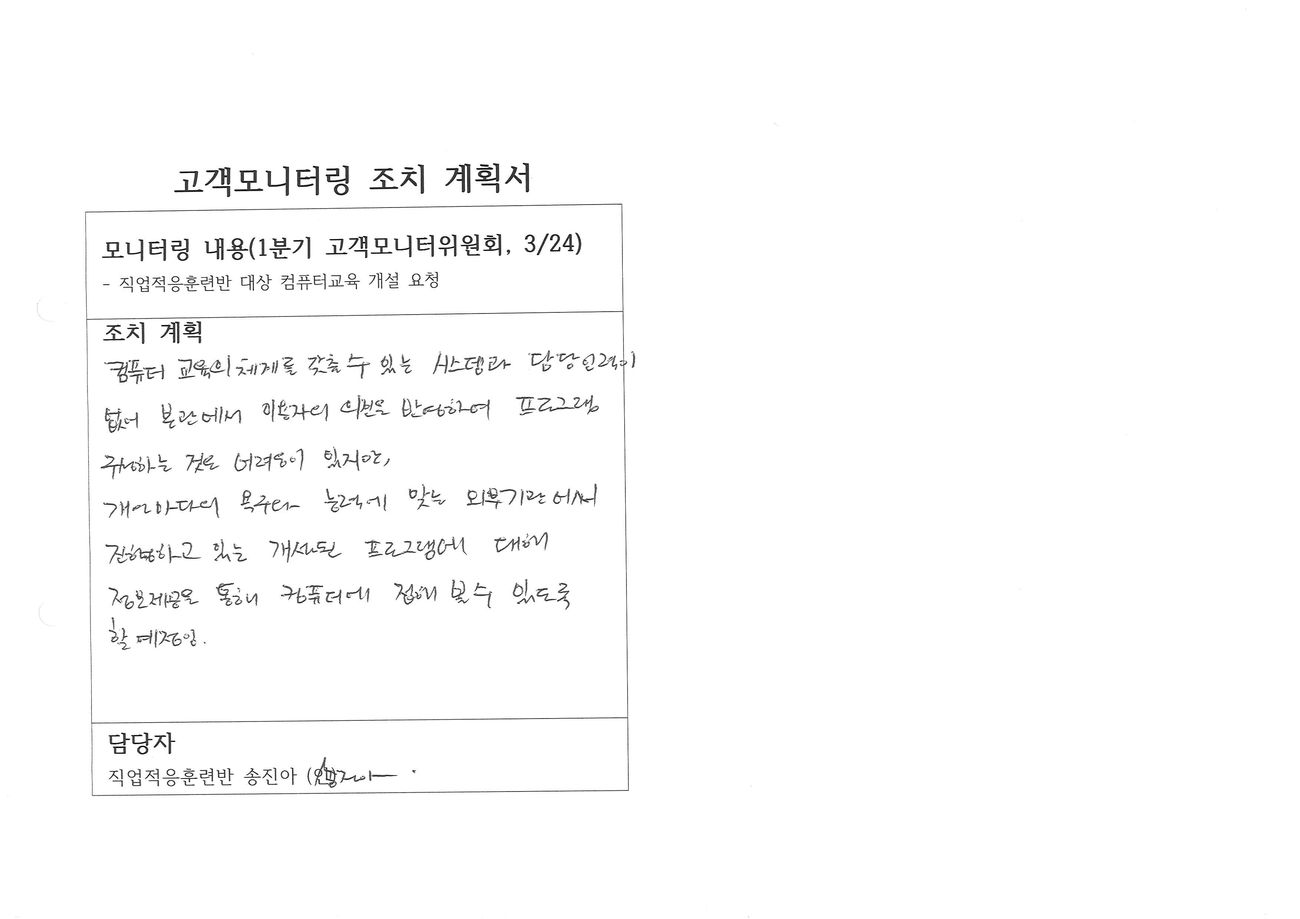 고객모니터링 조치 계획서
모니터링 내용(1분기 고객모니터위원회, 3/24)
- 직업적응훈련반 대상 컴퓨터교육 개설 요청
조치 계획
컴퓨터 교육의 체계를 갖출 수 있는 시스템과 담당인력이
없어 본관에서 이용자의 의견을 반영하여 프로그램
구성하는 것은 어려움이 있지만,
개인마다의 욕구와 능력에 맞는 외부기관에서
진행하고 있는 개설된 프로그램에 대해
정보제공을 통해 컴퓨터에 접해 볼 수 있도록
할 예정임.
담당자
직업적응훈련반 송진아 (